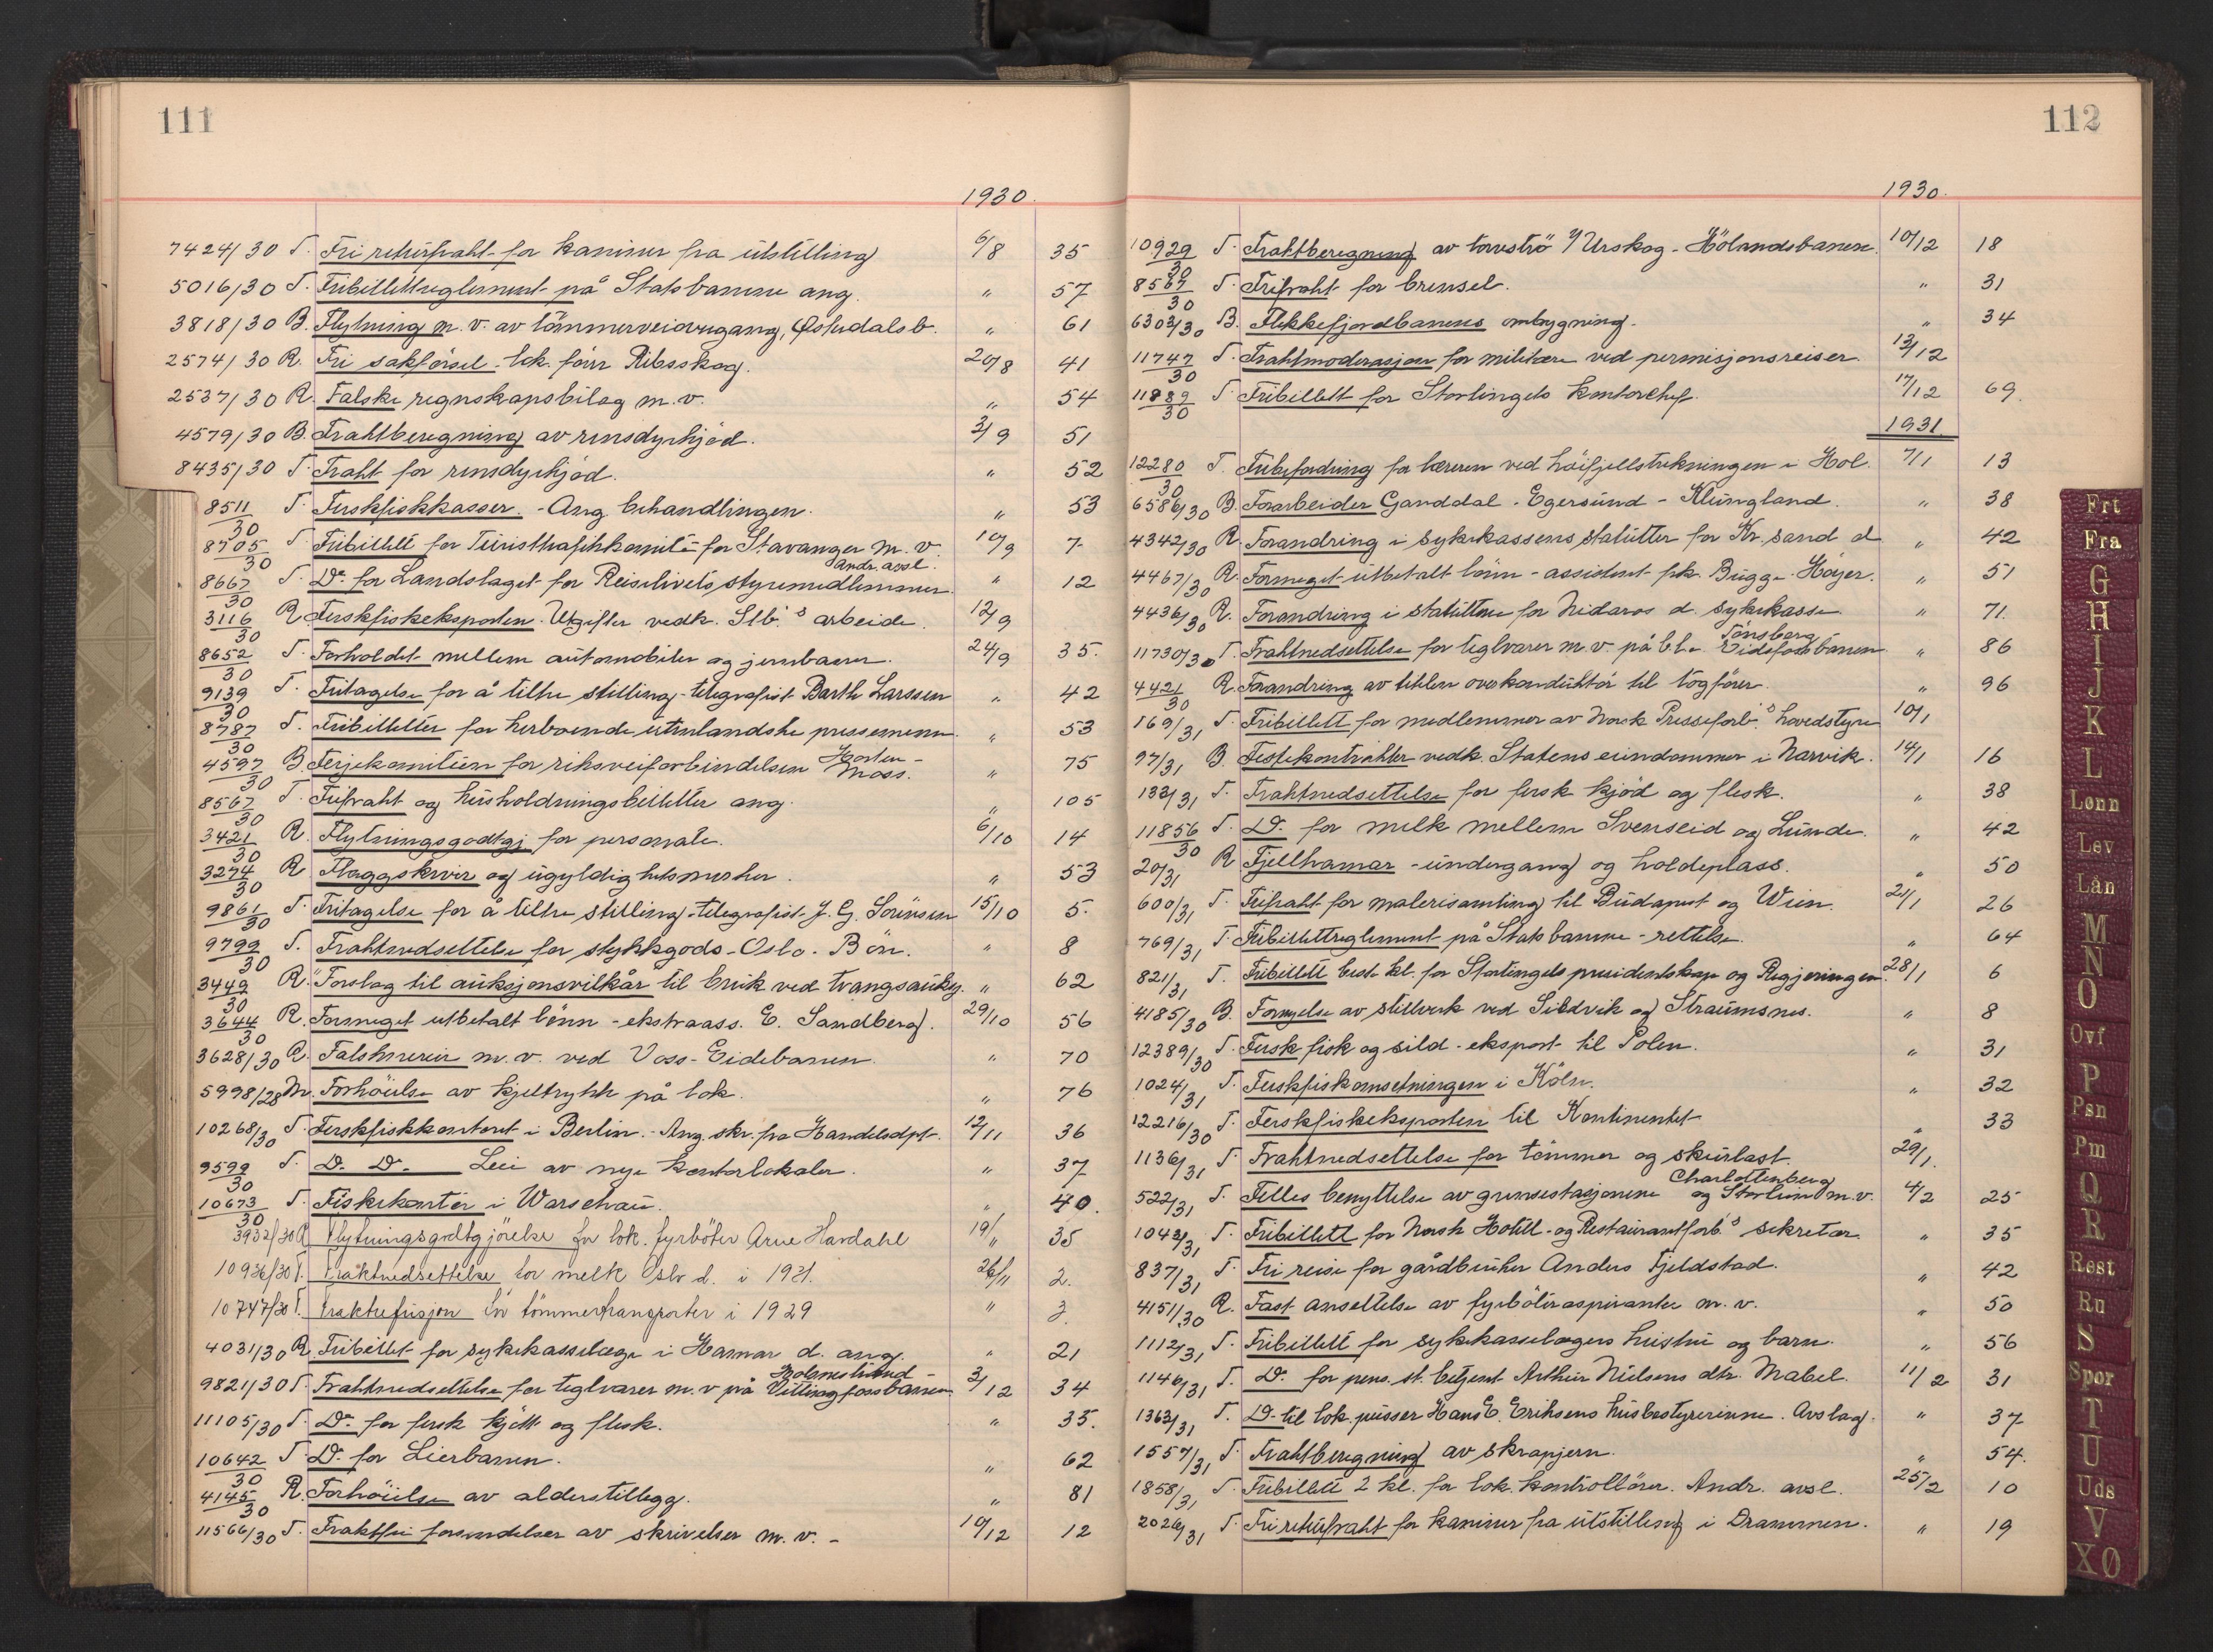 111
1930.
7424/30 T. Fri returfrakt for kaniner fra utstilling 6/8 35
5016/30 T. Fribillettreglement på Statsbanene ang. " 57
3818/30 B. Flytning m.v. av tømmerveiovergang, Østerdalsb. " 61
2574/30 R. Fri sakförsel - lok.förer Ribsskog. 20/8 41
2537/30 R. Falske regnskapsbilag m.v. " 54
4579/30 B. Fraktberegning av rensdyrkjöd. 3/9 51
8435/30 T. Frakt for rensdyrkjöd. " 52
8511/30 T. Ferskfiskkasser. - Ang. behandlingen. " 53
8705/30 T. Fribillett for Turisttrafikkomité for Stavanger m.v. 10/9 7.
8667/30 T. Do. for Landslaget for Reiselivets styremedlemmer. andr. avsl. " 12
3116/30 R. Ferskfiskeksporten. Utgifter vedk. Stb.s arbeide. 12/9
8652/30 T. Forholdet mellem automobiler og jernbaner. 24/9 35.
9139/30 T. Fritagelse for å tiltre stilling - telegrafist Barth Larssen " 42
8787/30 T. Fribilletter for herboende utenlandske pressemenn. " 53
4597/30 B. Ferjekomitéen for riksveiforbindelsen Horten - Moss. " 75
8567/30 T. Frifrakt og husholdningsbilletter ang. " 105
3421/30 R. Flytningsgodtgj. for personale. 6/10 14
3274/30 R. Flaggskiver og ugyldighetsmerker. " 53
9861/30 T. Fritagelse for å tiltre stilling - telegrafist J. G. Sörensen 15/10 5.
9799/30 T. Fraktnedsettelse for stykkgods - Oslo - Bön. " 8
3449/30 R. "Forslag til auksjonsvilkår til bruk ved tvangsauksj. " 62
3644/30 R. Formeget utbetalt lönn - ekstraass. E. Sandberg. 29/10 56
3628/30 R. Falskneriir m.v. ved Voss - Eidebanen. " 70
5998/28 M. Forhöielse av kjeltrykk på lok. " 76
10268/30 T. Ferskfiskkontoret i Berlin. - Ang. skr. fra Handelsdpt. 12/11 36
9599/30 T. D. D. Leie av nye kontorlokaler. " 37
10673/30 T. Fiskekontor i Warschau. " 40.
3932/30 R. Flytningsgodtgjörelse for lok. fyrböter Arne Hardahl 19/11 35
10936/30 T. Fraktnedsettelse for melk Oslo d. i 1931. 26/11 2.
10747/30 T. Fraktrefusjon for tömmertransporter i 1929 " 3.
4031/30 R. Fribillet for sykekasselæge i Hamar d. ang. " 21
9821/30 T. Fraktnedsettelse for teglvarer m.v. på Holmestrand - Vittingfossbanen 3/12 34
11105/30 T. Do. for fersk kjött og flesk. " 35.
10642/30 T. Do. for Lierbanen. " 62
4145/30 R. Forhöielse av alderstillegg. " 81
11566/30 T. Fraktfri forsendelser av skrivelser m.v. - 10/12 12
112
1930.
10929/30 T. Fraktberegning av torvströ i/ Urskog - Hölandsbanen. 10/12 18
8567/30 T. Frifrakt for brensel. " 31
6303/30 B. Flekkefjordbanens ombygning. " 34
11747/30 T. Fraktmoderasjon for militære ved permisjonsreiser. 13/12
11889/30 T. Fribillett for Stortingets kontorchef. 17/12 69.
1931.
12280/30 T. Fribefordring for læreren ved höifjellstrekningen i Hol. 7/1 13
6586/30 B. Forarbeider Ganddal - Egersund - Klungland. " 38
4342/30 R. Forandring i sykekassens statutter for Kr.sand d " 42
4467/30 R. Formeget utbetalt lönn - assistent frk. Bugge-Höyer. " 51
4436/30 R. Forandring i statuttene for Nidaros d. sykekasse " 71.
11730/30 T. Fraktnedsettelse for teglvarer m.v. på bl.a. Tönsberg - Eidsfossbanen " 86
4421/30 R. Forandring av titlen overkonduktör til togförer. " 96
169/31 T. Fribillett for medlemmer av Norsk Presseforb.s hovedstyre 10/1
97/31 B. Festekontrakter vedk. Statens eiendommer i Narvik. 14/1 16
133/31 T. Fraktnedsettelse for fersk kjöd og flesk. " 38
11856/30 T. D. for melk mellem Svenseid og Lunde. " 42
20/31 R Fjellhamar - undergang og holdeplass. " 50
600/31 T. Frifrakt for malerisamling til Budapest og Wien. 21/1 26
769/31 T. Fribillettreglement på Statsbanene - rettelse. " 64
821/31 T. Fribillett beste kl. for Stortingets presidentskap og Regjeringen. 28/1 6
4185/30 B. Fornyelse av stillverk ved Sildvik og Straumsnes. " 8
12389/30 T. Fersk fisk og sild - eksport til Polen. " 31
1024/31 T. Ferskfiskomsetningen i Köln. " 32
12216/30 T. Ferskfiskeksporten til Kontinentet " 33
1136/31 T. Fraktnedsettelse for tömmer og skurlast. 29/1.
522/31 T. Felles benyttelse av grensestasjonene Charlottenberg og Storlien m.v. 4/2 25
1042/31 T. Fribillett for Norsk Hotell- og Restaurantforb.s sekretær. " 35
837/31 T. Fri reise for gårdbruker Anders Fjeldstad. " 42
4151/30 R. Fast ansettelse av fyrböteraspiranter m.v. " 50
1112/31 T. Fribillett for sykekasselægers hustru og barn. " 56
1146/31 T. D. for pens. st. betjent Arthur Nielsens dtr. Mabel. 11/2 31
1363/31 T. D. til lok. pusser Hans E. Eriksens husbestyrerinne. Avslag. " 37
1557/31 T. Fraktberegning av skrapjern. " 54.
1858/31 T. Fribillett 2 kl. for lok. kontrollörer. Andr. avsl. 25/2 10
2026/31 T. Fri returfrakt for kaniner fra utstilling i Drammen. " 19
Frt
Fra
G
H
I
J
K
L
Lønn
Lev
Lån
M
N
O
Ovf
P
Psn
Pm
Q
R
Rest
Ru
S
Spor
T
U
Uds
V
XØ